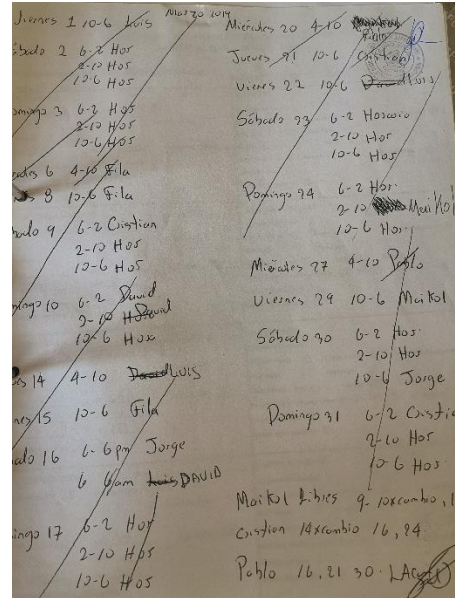 Marzo 2019
Viernes 1 10-6 Luis
Sábado 2 6-2 Hor
2-10 Hor
10-6 Hor
omingo 3 6-2 Hor
2-10 Hor
10-6 Hor
6 4-10 Fila
8 10-6 Fila
bado 9 6-2 Cristian
2-10 Hor
10-6 Hor
mingo 10 6-2 David
2-10 David
10-6 Hor
es 14 4-10 David LUIS
nes 15 10-6 Fila
alo 16 6-6pm Jorge
6 6am Luis DAVID
ingo 17 6-2 Hor
2-10 Hor
10-6 Hor
Miércoles 20 4-10 Pablo
Jueves 21 10-6 Cristian
Viernes 22 10-6 David Luis
Sábado 23 6-2 Horacio
2-10 Hor
10-6 Hor
Domingo 24 6-2 Hor
2-10 Maikol
10-6 Hor
Miércoles 27 4-10 Pablo
Viernes 29 10-6 Maikol
Sábado 30 6-2 Hor
2-10 Hor
10-6 Jorge
Domingo 31 6-2 Cristia
2-10 Hor
10-6 Hor
Maikol libres 9-10xcambio, 1
Cristian 14xcambio 16, 24
Pablo 16, 21 30.